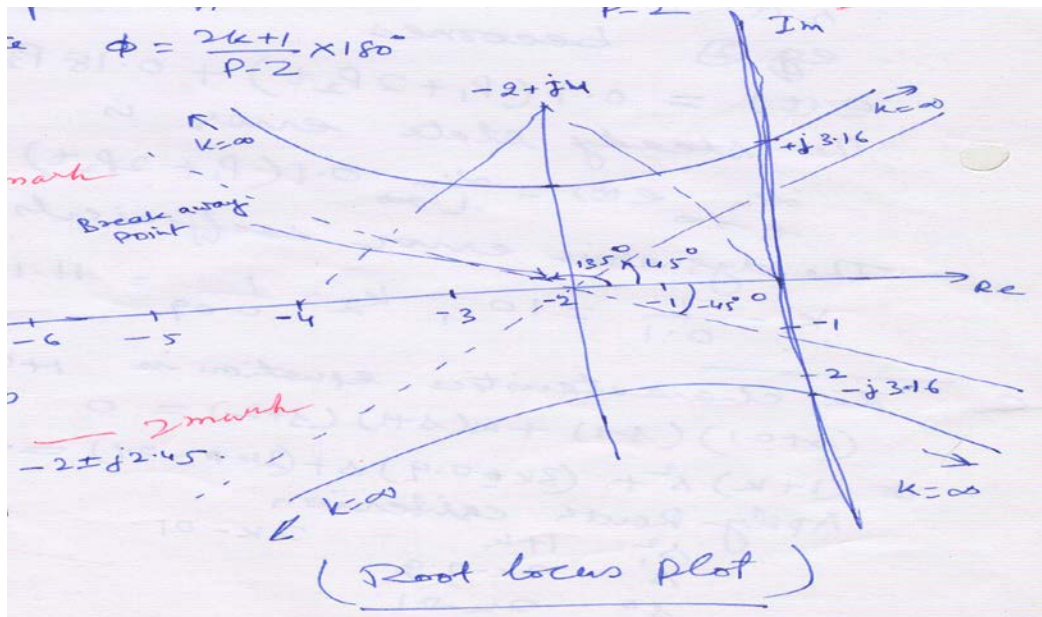 Φ = 2k+1 / P-Z × 180°
Im
-2+j4
k=∞
k=∞
+j 3.16
mark
Break away
point
135°
45°
-6
-5
-4
-3
-2
-1
-45°
0
Re
-1
-2
-j 3.16
2 mark
-2 ± j2.45
k=∞
k=∞
(Root locus plot)